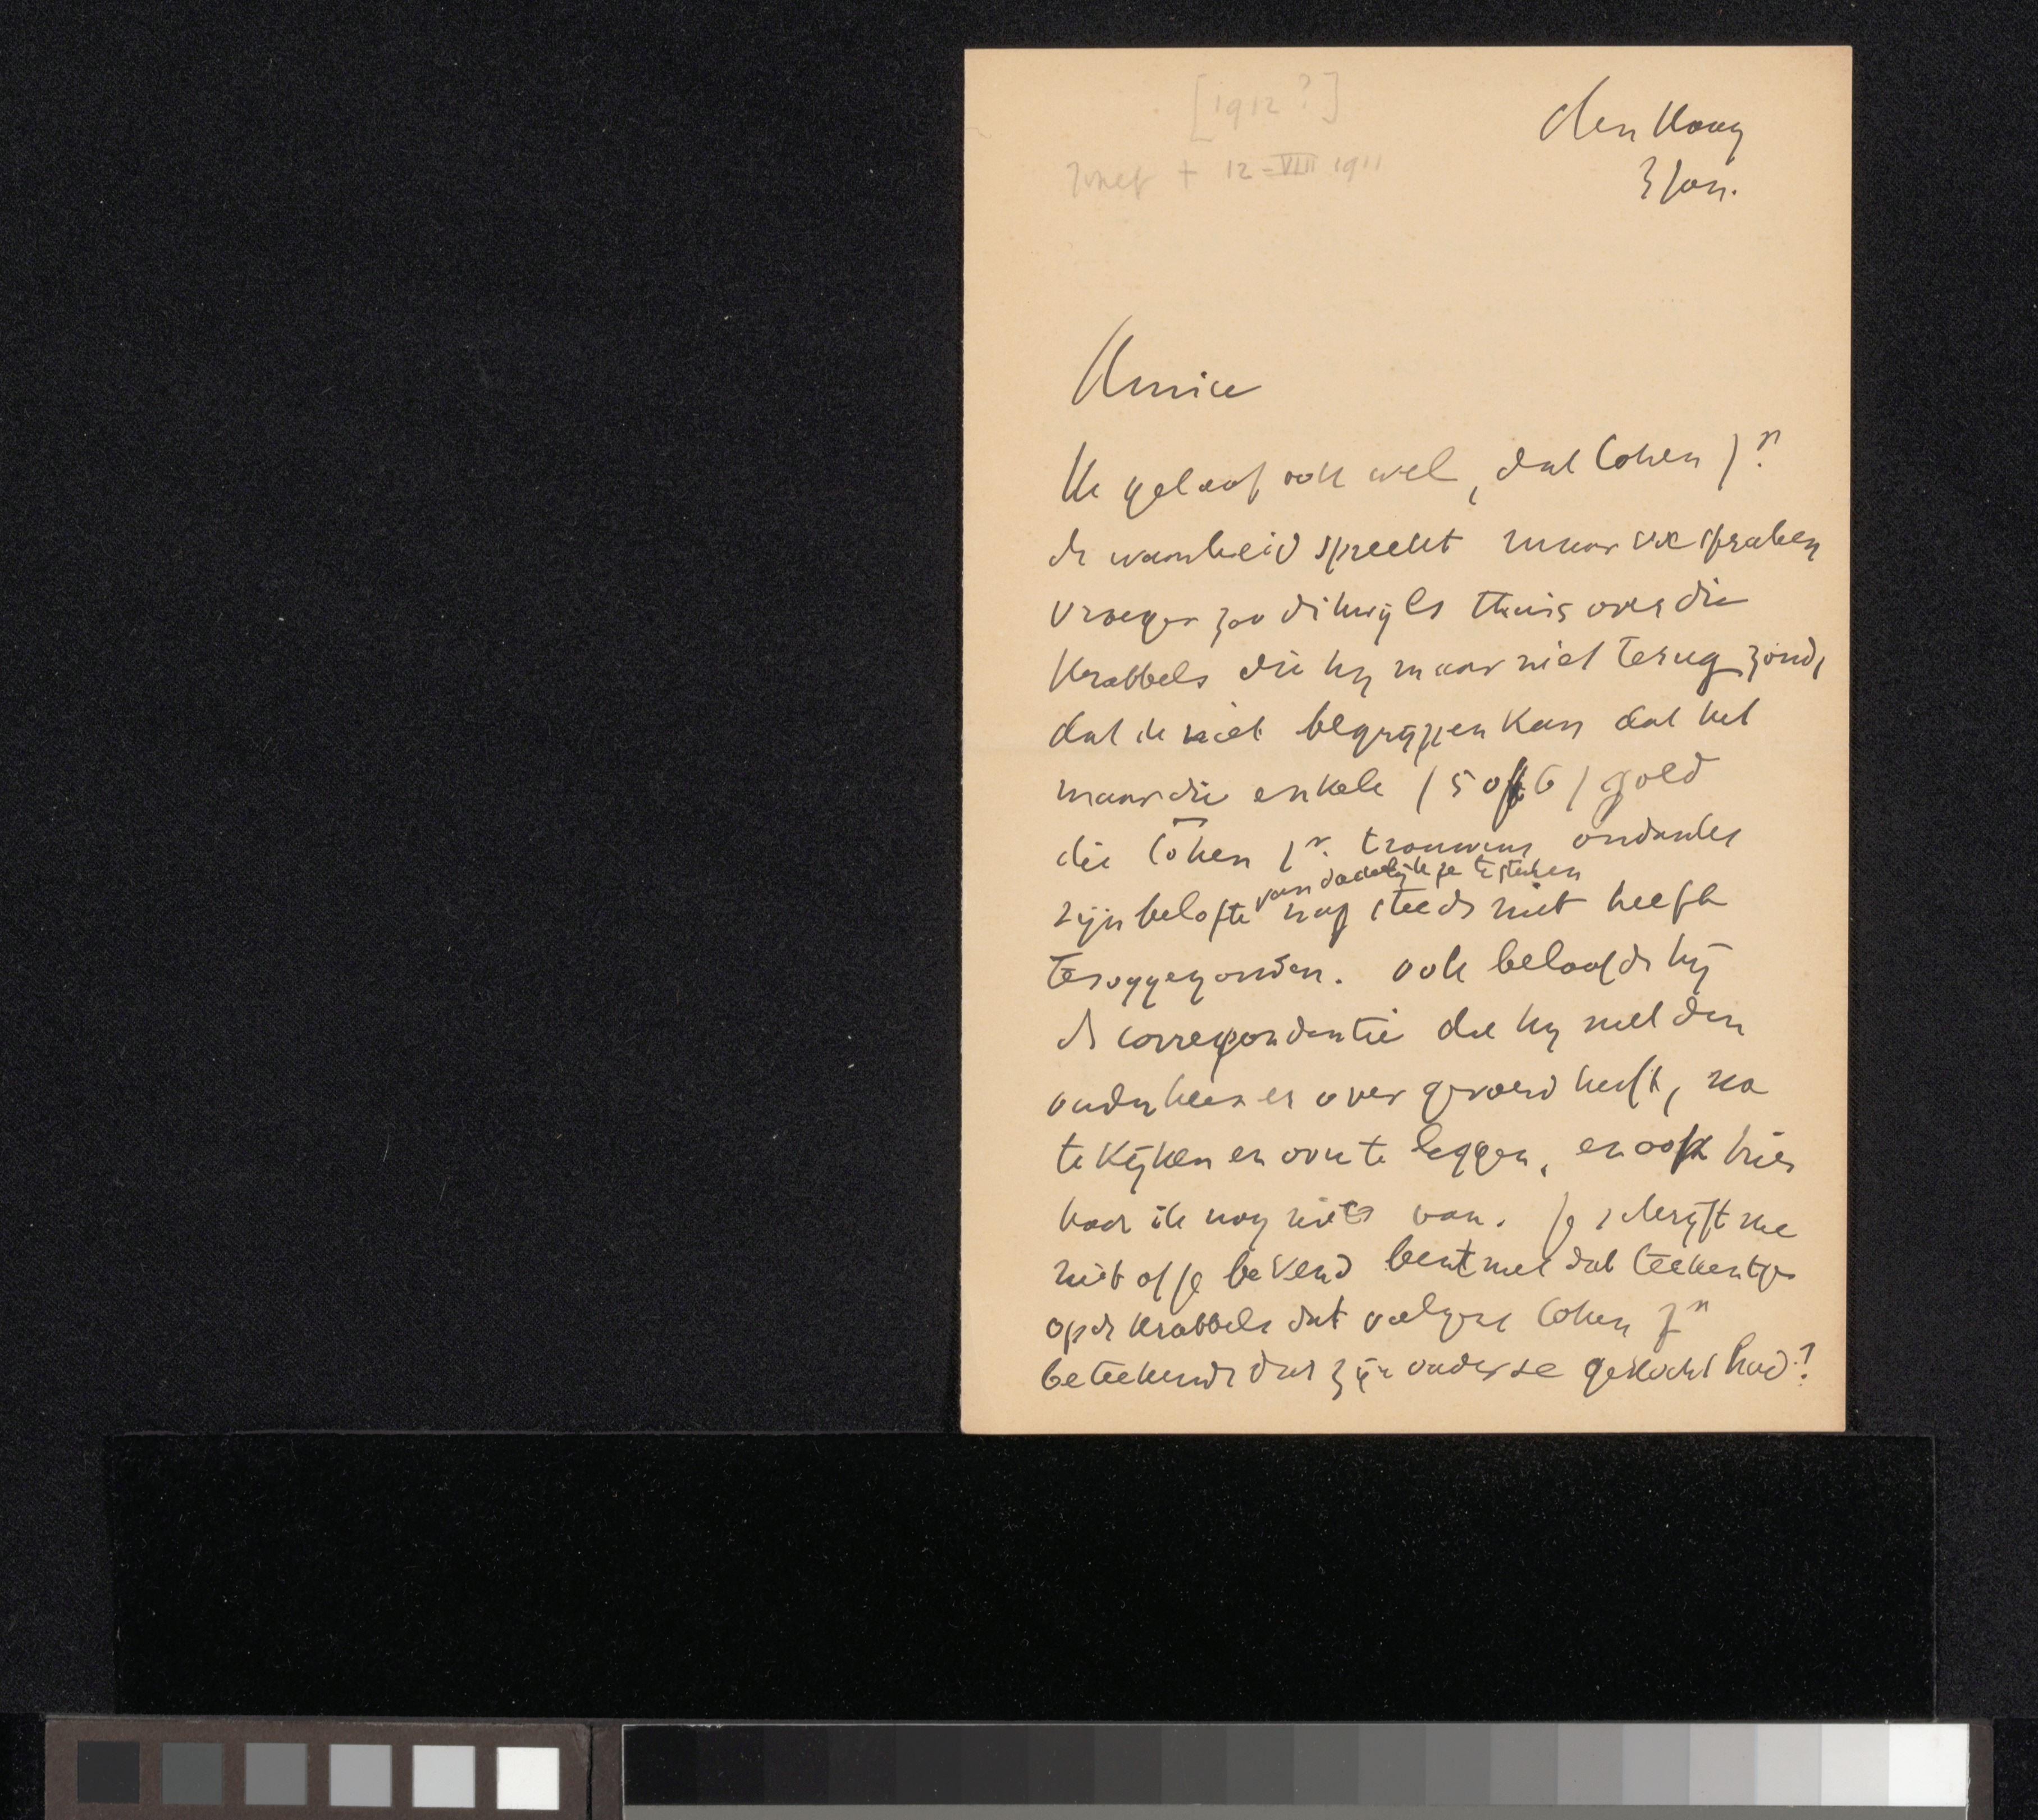 [1912?]
Jozef + 12-VIII 1911
den Haag
3 Jan.
Amice
Ik geloof ook wel, dat Cohen Jr.
de waarheid spreekt maar we spraken
vroeger zoo dikwijls thuis over die
krabbels die hij maar niet terug zond,
dat ik niet begrijpen kan dat het
maar die enkele (5 of 6) gold
die Cohen Jr. trouwens ondanks
zijn belofte van dadelijk ze te sturen nog steeds niet heeft
teruggezonden. ook beloofde hij
de correspondentie die hij met den
ouden heer er over gevoerd heeft, na
te kijken en over te leggen, en ook hier
hoor ik nog niets van. Je schrijft me
niet of je bekend bent met dat teekentje
op de krabbels dat volgens Cohen Jr
beteekende dat zijn vader ze gekocht had?